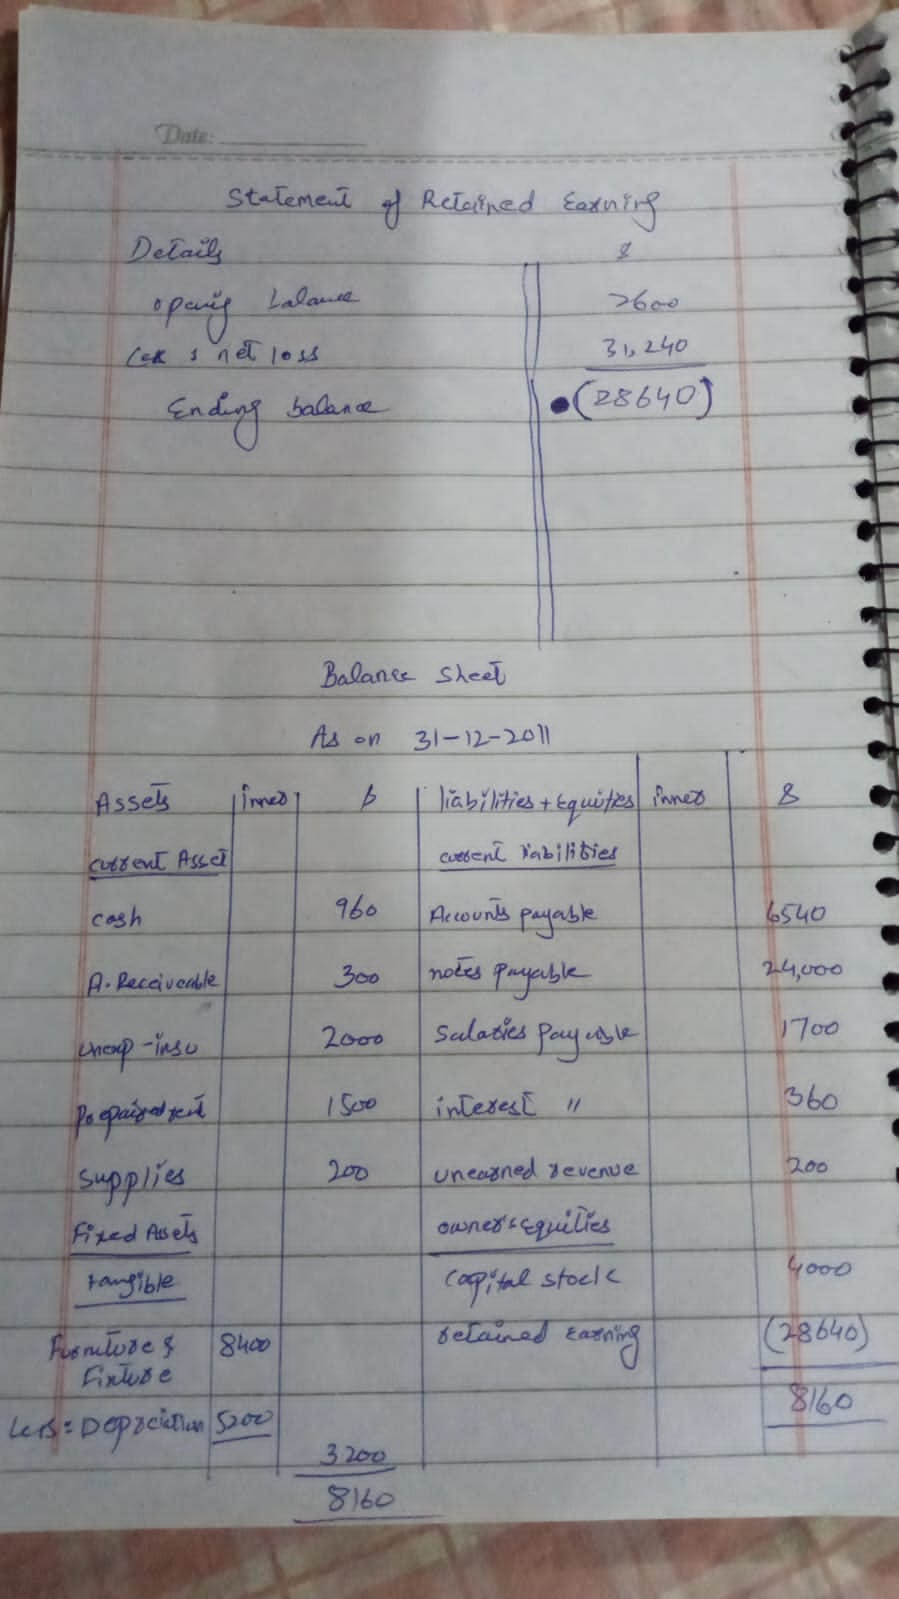 Date:
Statement of Retained Earning
Details $
opening balance 2600
Less : net loss 31,240
Ending balance (28640)
Balance Sheet
As on 31-12-2011
Assets inner $ liabilities + Equities inner $
current Asset current liabilities
cash 960 Accounts payable 6540
A. Receiveable 300 notes payable 24,000
unexp - insu 2000 Salaries payable 1700
Prepaired rent 1500 interest " 360
Supplies 200 unearned revenue 200
Fixed Assets owner's Equities
tangible capital stock 4000
Furniture & 8400 retained earning (28640)
Fixture
8160
Less = Depreciation 5200
3200
8160